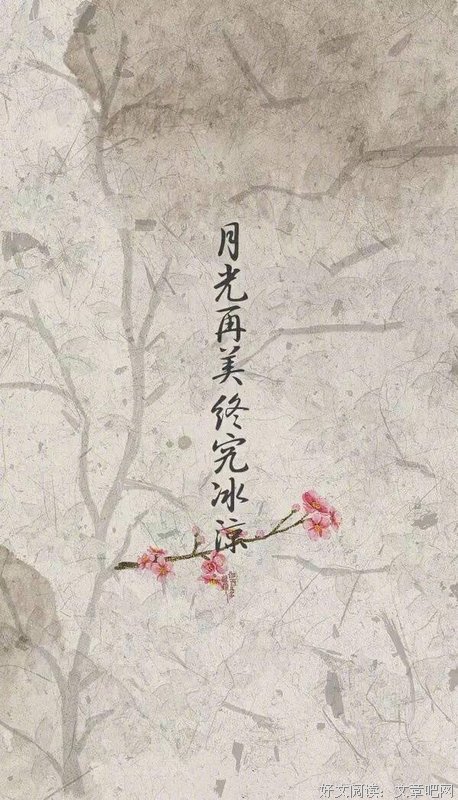 月光再美终究冰凉
好文阅读：文章吧网